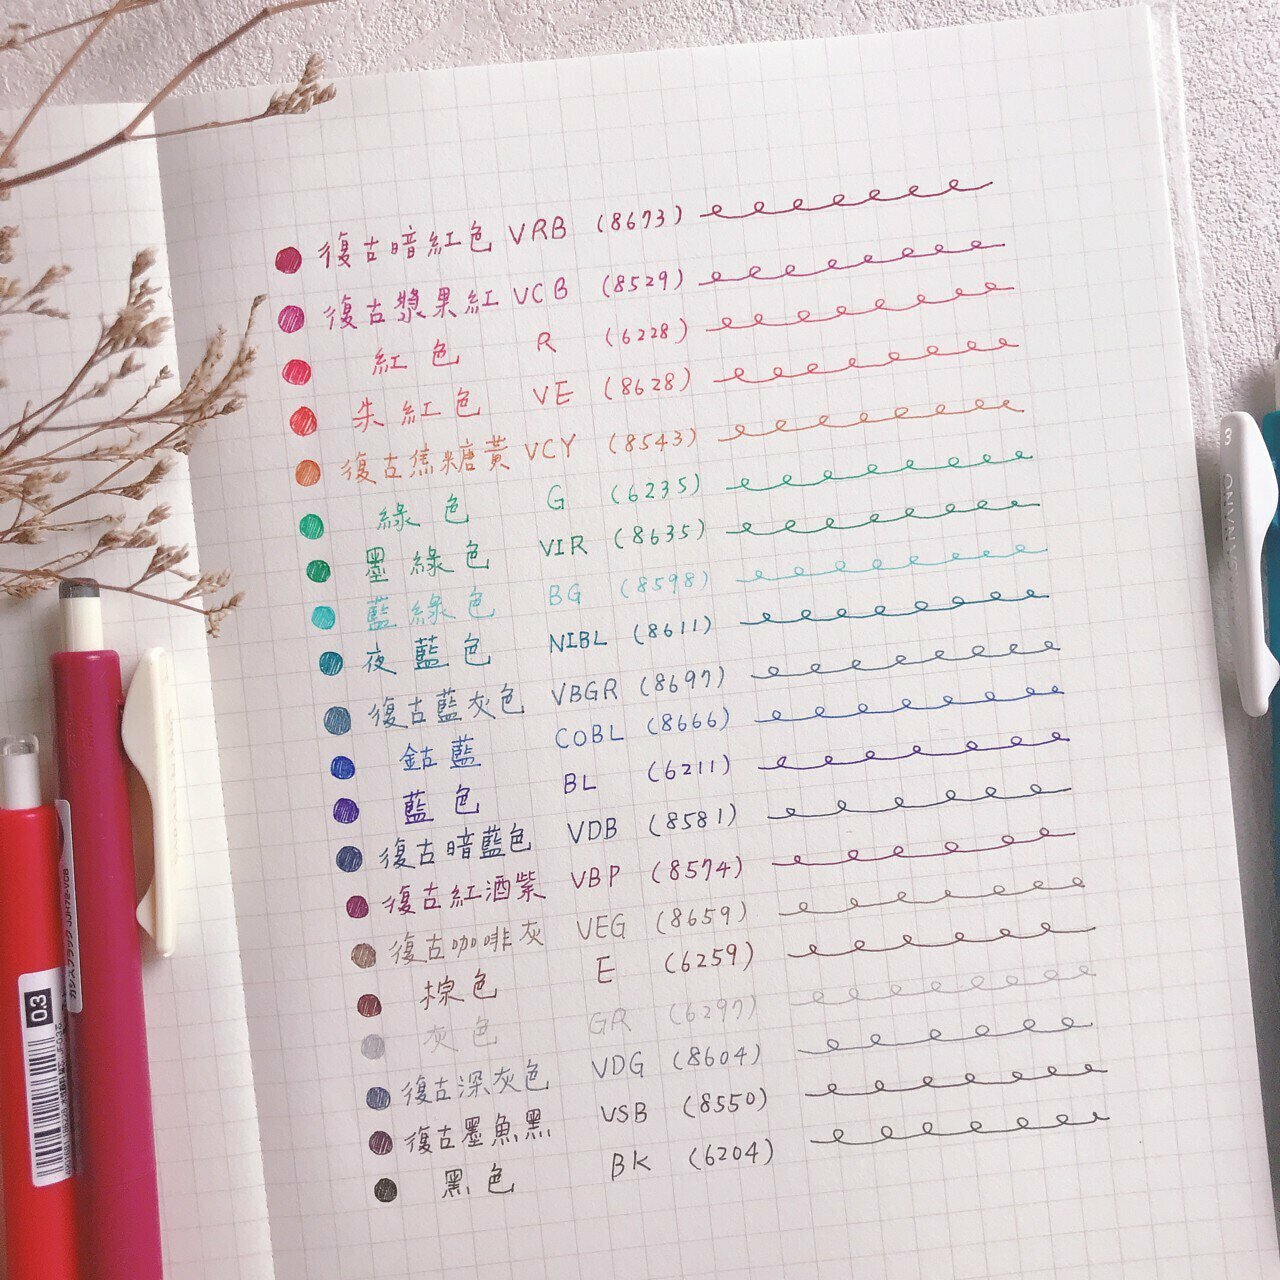 復古暗紅色 VRB (8673)
復古漿果紅 VCB (8529)
紅色 R (6228)
朱紅色 VE (8628)
復古焦糖黃 VCY (8543)
綠色 G (6235)
墨綠色 VIR (8635)
藍綠色 BG (8598)
夜藍色 NIBL (8611)
復古藍灰色 VBGR (8697)
鈷藍 COBL (8666)
藍色 BL (6211)
復古暗藍色 VDB (8581)
復古紅酒紫 VBP (8574)
復古咖啡灰 VEG (8659)
棕色 E (6259)
灰色 GR (6297)
復古深灰色 VDG (8604)
復古墨魚黑 VSB (8550)
黑色 BK (6204)
0.3
カシスブラック JJH72-VCB
3